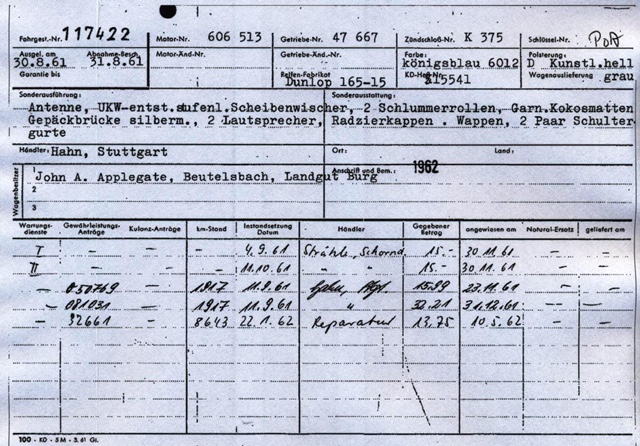 Fahrgest.-Nr. 117422 Motor-Nr. 606 513 Getriebe-Nr. 47 667 Zündschloß-Nr. K 375 Schlüssel-Nr.
Ausgel. am Abnahme-Besch. Motor-Änd.-Nr. Getriebe-Änd.-Nr. Farbe: Polsterung:
30.8.61 31.8.61 königsblau 6012 D Kunstl.hell
Garantie bis Reifen-Fabrikat KD-Heft-Nr. Wagenauslieferung grau
Dunlop 165-15 215541
Sonderausführung: Sonderausstattung:
Antenne, UKW-entst.stufenl.Scheibenwischer, 2 Schlummerrollen, Garn.Kokosmatten
Gepäckbrücke silberm., 2 Lautsprecher, Radzierkappen . Wappen, 2 Paar Schulter-
gurte
Händler: Hahn, Stuttgart Ort: Land:
Wagenbesitzer Anschrift und Bem. 1962
1 John A. Applegate, Beutelsbach, Landgut Burg
2
3
Wartungs-dienste Gewährleistungs-Anträge Kulanz-Anträge km-Stand Instandsetzung Datum Händler Gegebener Betrag angewiesen am Natural-Ersatz geliefert am
I – – – 4.9.61 Strähle, Schornd. 15.- 30.11.61 – –
II – – – 11.10.61 " " 15.- 30.11.61 – –
– 050769 – 1917 11.9.61 Hahn, 15.99 – –
– 081031 – 1917 11.9.61 " 32.21 31.12.61 – –
– 32661 – 8643 22.1.62 Reparatur 13,75 10.5.62 – –
100 - KD - 5 M - 5. 61 Gt.